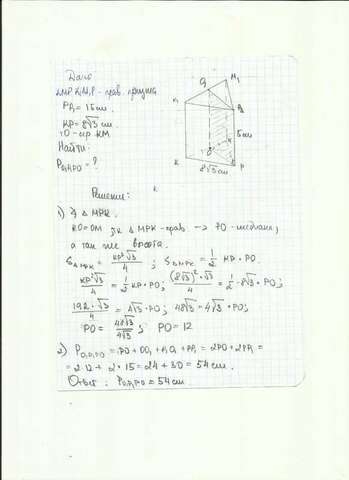 Дано
KMPK₁M₁P₁ - прав. призма
PP₁ = 15 см.
KP = 8√3 см.
O - ср KM
Найти:
P₀₁P₁PO = ?
O₁
M₁
K₁
P₁
15см
O
M
K
P
8√3 см
Решение:
1) Δ MPK.
KO = OM т.к Δ MPK - прав → PO - медиана,
а так же высота.
S△MPK = KP²√3/4 ; S△MPK = 1/2 KP · PO
KP²√3/4 = 1/2 KP · PO ; (8√3)² · √3/4 = 1/2 · 8√3 · PO ;
192 · √3/4 = 4√3 · PO ; 48√3 = 4√3 · PO ;
PO = 48√3/4√3 ; PO = 12
2) P O₁P₁PO = PO + OO₁ + P₁O₁ + PP₁ = 2PO + 2PP₁ =
= 2·12 + 2·15 = 24 + 30 = 54 см.
Ответ: P O₁P₁PO = 54 см